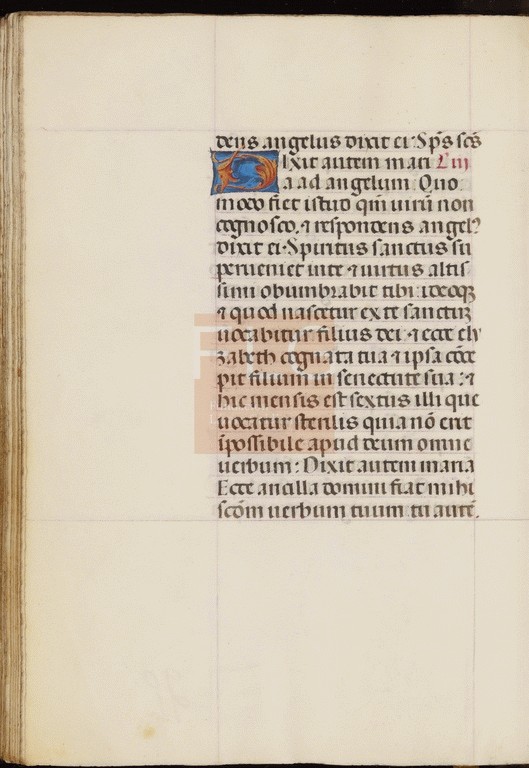 dens angelus dixit ei· Sp̄s scs̄
Dixit autem mari L' iii
a ad angelum: Quo
modo fiet istud qm̄ uirū non
cognosco. ⁊ respondens angelꝰ
dixit ei· Spiritus sanctus su
perueniet inte ⁊ uirtus altis
simi obumbrabit tibi: ideoqꝫ
⁊ quod nascetur ex te sanctuꝫ
uocabitur filius dei: ⁊ ecce ely
zabeth cognata tua ⁊ ipsa cōce
pit filium in senectute sua: ⁊
hic mensis est sextus illi que
uocatur sterilis quia nō erit
īpossibile apud deum omne
uerbum: Dixit autem maria
Ecce ancilla domini fiat mihi
scd̄m uerbum tuum: tu autē.